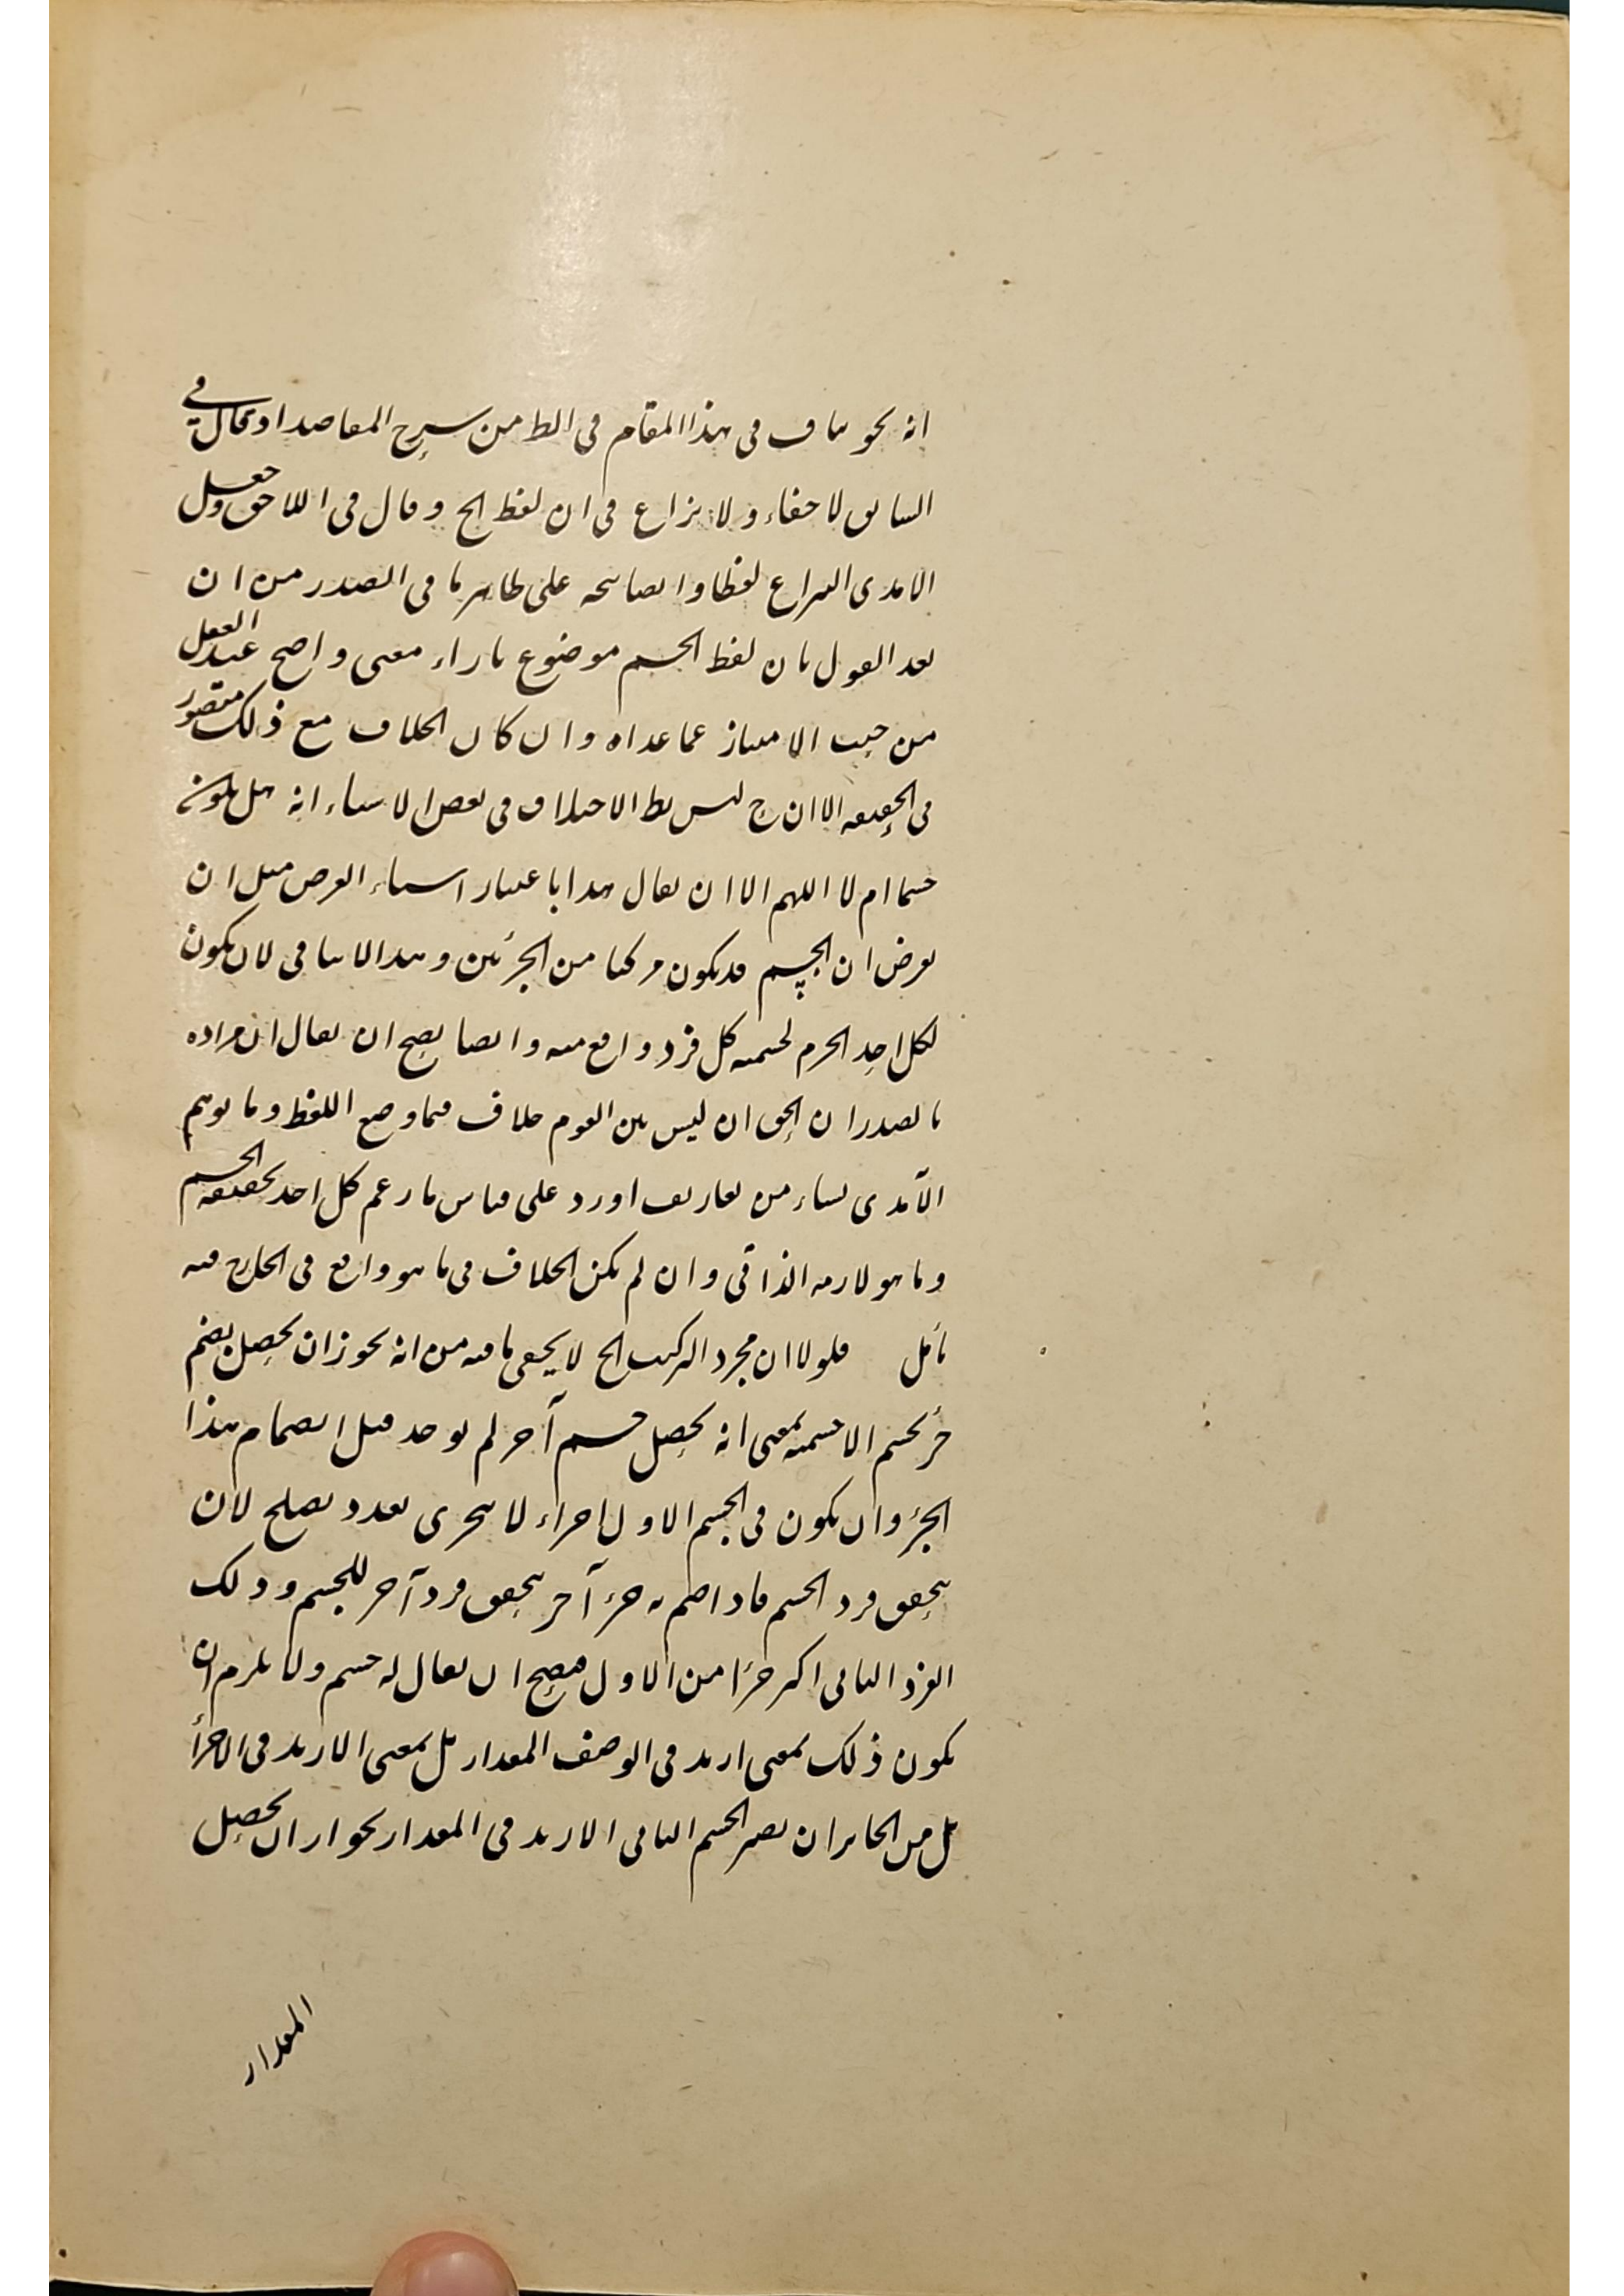 انه نحو مناف فى هذا المقام فى الظ من شرح المقاصد اذ قال فى
السابق لا خفاء ولا نزاع فى ان لفظ الخ و قال فى اللاحق وجعل
الامدى النزاع لفظا وايضا على ظاهر ما فى الصدر من ان
بعد القول بان لفظ الجسم موضوع بازاء معنى واضح عند العقل
من حيث الامتياز عما عداه وان كان الخلاف مع ذلك متصور
فى الحقيقه الا ان ح ليس الاختلاف فى بعض الاشياء انه هل يكون
جسما ام لا اللهم الا ان يقال هذا باعتبار العرض مثل ان
يعرض ان الجسم قد يكون مركبا من الجزئين و هذا لا ينافى لان يكون
لكل احد الجزم لجسميه كل فرد واقع منه وايضا يصح ان يقال ان مراده
بالصدر ان الحق ان ليس بين القوم خلاف فيما وضع اللفظ وما توهم
الآمدى من تعاريف اورد على قياس ما زعم كل احد بحقيقه الجسم
و ما هو لازمه الذاتى وان لم يكن الخلاف فى ما هو واقع فى الخارج منه
تأمل فلولا ان مجرد التركيب الخ لا يخفى ما فيه من انه يجوز ان يحصل بضم
جزء بجسم الاجسميه بمعنى انه يحصل جسم آخر لم يوجد قبل انضمام هذا
الجزء وان يكون فى الجسم الاول اجزاء لا تتجزى بعدد يصلح لان
يتحقق فرد الجسم فاذا ضم به جزء آخر يتحقق فرد آخر للجسم وذلك
الفرد الثانى اكثر جزءا من الاول فيصح ان يقال له جسم ولا يلزم ان
يكون ذلك بمعنى ازيد فى الوصف المقدار بل بمعنى الازيد فى الاجزأ
بل من الجائز ان يصير الجسم الثانى الازيد فى المقدار بجواز ان يحصل
المقدار